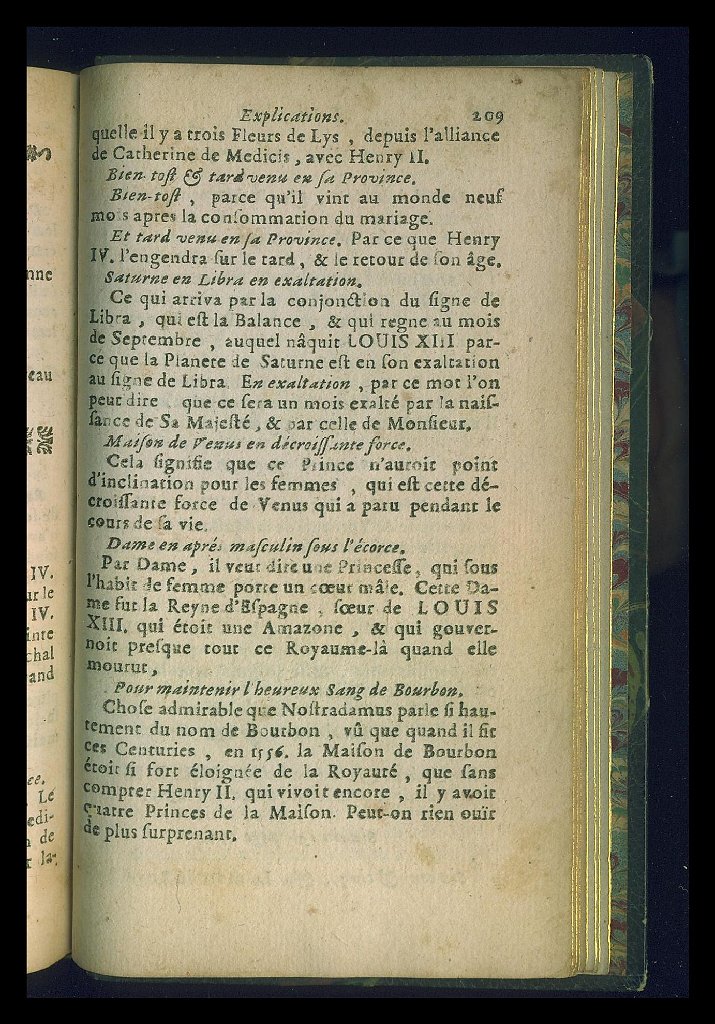 Explications. 209
quelle il y a trois Fleurs de Lys , depuis l'alliance
de Catherine de Medicis , avec Henry II.
Bien-toſt & tard venu en ſa Province.
Bien-toſt , parce qu'il vint au monde neuf
mois apres la conſommation du mariage.
Et tard venu en ſa Province. Par ce que Henry
IV. l'engendra ſur le tard , & le retour de ſon âge.
Saturne en Libra en exaltation.
Ce qui arriva par la conjonction du ſigne de
Libra , qui eſt la Balance , & qui regne au mois
de Septembre , auquel nâquit LOUIS XIII par-
ce que la Planete de Saturne eſt en ſon exaltation
au ſigne de Libra. En exaltation , par ce mot l'on
peut dire que ce ſera un mois exalté par la naiſ-
ſance de Sa Majeſté , & par celle de Monſieur.
Maiſon de Venus en décroiſſante force.
Cela ſignifie que ce Prince n'auroit point
d'inclination pour les femmes , qui eſt cette dé-
croiſſante force de Venus qui a paru pendant le
cours de ſa vie.
Dame en aprés maſculin ſous l'écorce.
Par Dame , il veut dire une Princeſſe, qui ſous
l'habit de femme porte un cœur mâle. Cette Da-
me fut la Reyne d'Eſpagne , ſœur de LOUIS
XIII. qui étoit une Amazone , & qui gouver-
noit preſque tout ce Royaume-là quand elle
mourut,
Pour maintenir l'heureux Sang de Bourbon.
Choſe admirable que Noſtradamus parle ſi hau-
tement du nom de Bourbon , vû que quand il fit
ces Centuries , en 1556. la Maiſon de Bourbon
étoit ſi fort éloignée de la Royauté , que ſans
compter Henry II. qui vivoit encore , il y avoit
quatre Princes de la Maiſon. Peut-on rien ouïr
de plus ſurprenant.